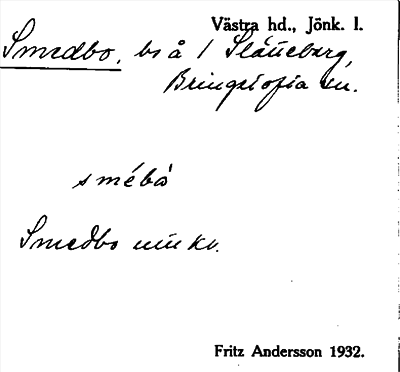 Västra hd., Jönk. l.
Smedbo, bs å 1 Slätteberg,
Bringetofta sn.
smébå
Smedbo min kv.
Fritz Andersson 1932.